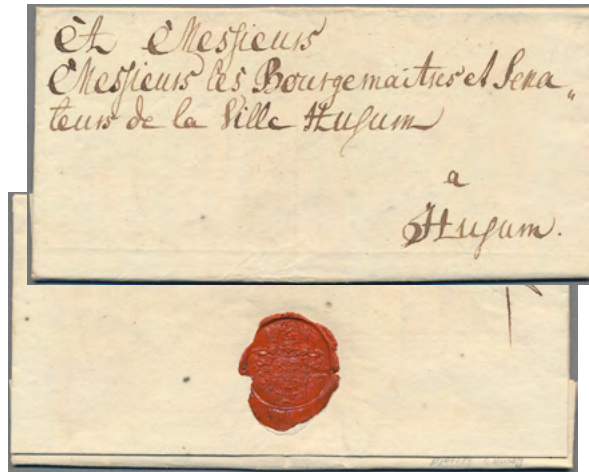 A Messieurs
Messieurs les Bourgemaitres et Sena„
teurs de la Ville Husum
a
Husum.